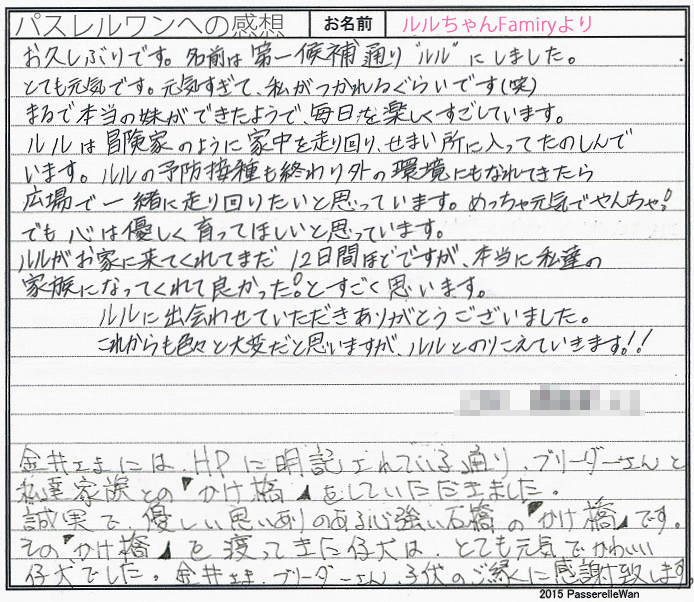 パスレルワンへの感想 お名前 ルルちゃんFamiryより
お久しぶりです。名前は第一候補通り"ルル"にしました。
とても元気です。元気すぎて、私がつかれるぐらいです(笑)
まるで本当の妹ができたようで、毎日を楽しくすごしています。
ルルは冒険家のように家中を走り回り、せまい所に入ってたのしんで
います。ルルの予防接種も終わり外の環境にもなれてきたら
広場で一緒に走り回りたいと思っています。めっちゃ元気でやんちゃ!
でも心は優しく育ってほしいと思っています。
ルルがお家に来てくれてまだ12日間ほどですが、本当に私達の
家族になってくれて良かった!とすごく思います。
ルルに出会わせていただきありがとうございました。
これからも色々と大変だと思いますが、ルルとのりこえていきます!!
金井さまには、HPに明記されている通り、ブリーダーさんと
私達家族との『かけ橋』をしていただきました。
誠実で、優しい思いありのある心強い石橋の『かけ橋』です。
その『かけ橋』を渡ってきた仔犬は、とても元気でかわいい
仔犬でした。金井さま、ブリーダーさん、子犬のご縁に感謝致します。
2015 PasserelleWan